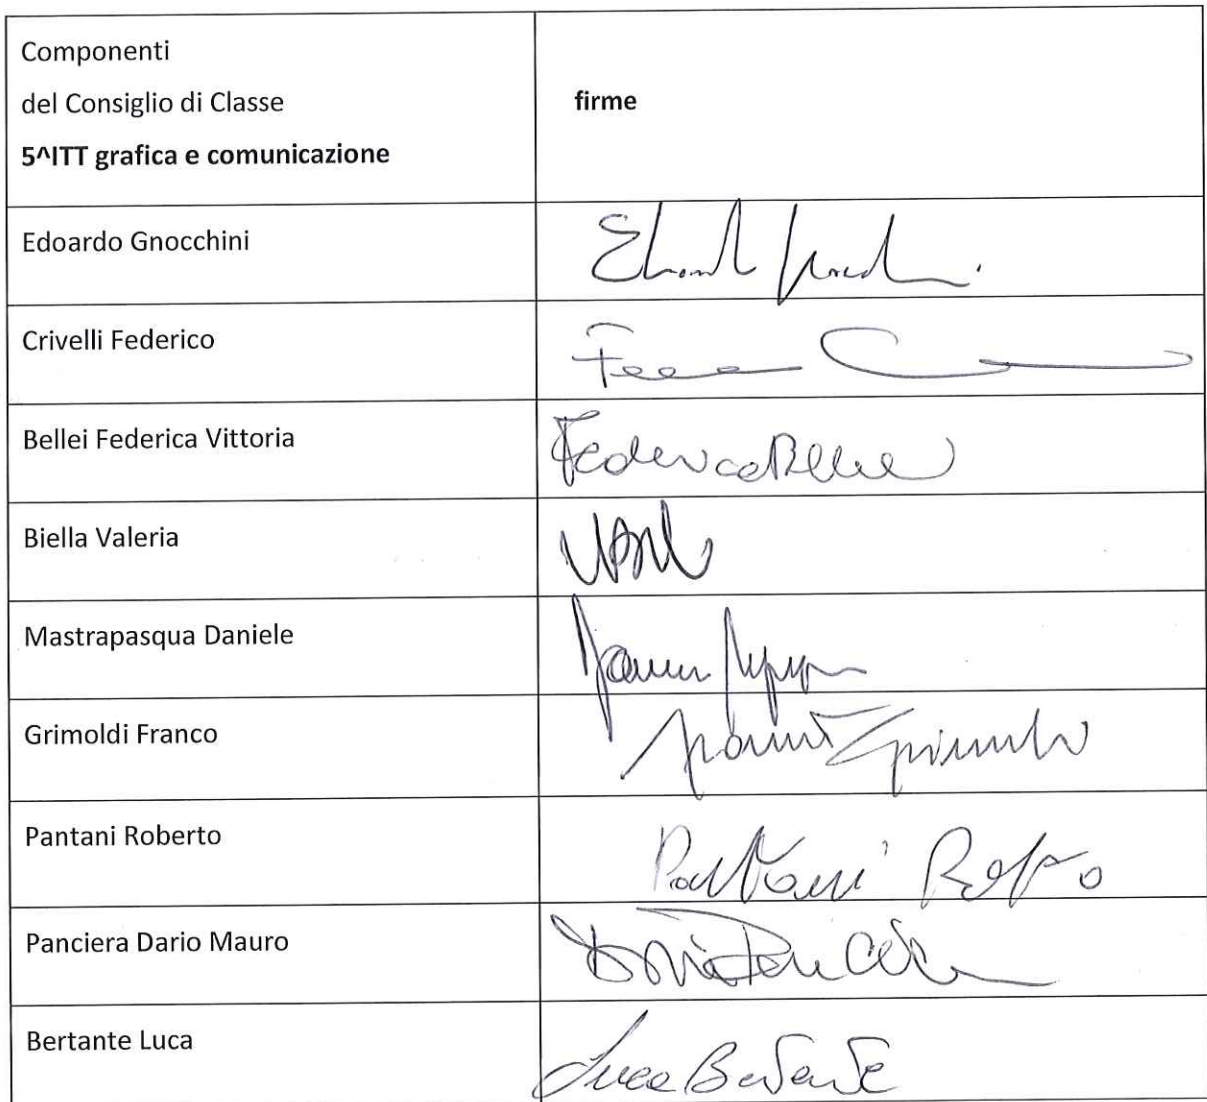 Componenti
del Consiglio di Classe
5^ITT grafica e comunicazione
firme
Edoardo Gnocchini
Crivelli Federico
Bellei Federica Vittoria
Federica Bellei
Biella Valeria
Mastrapasqua Daniele
Grimoldi Franco
Franco Grimoldi
Pantani Roberto
Pantani Roberto
Panciera Dario Mauro
Bertante Luca
Luca Bertante